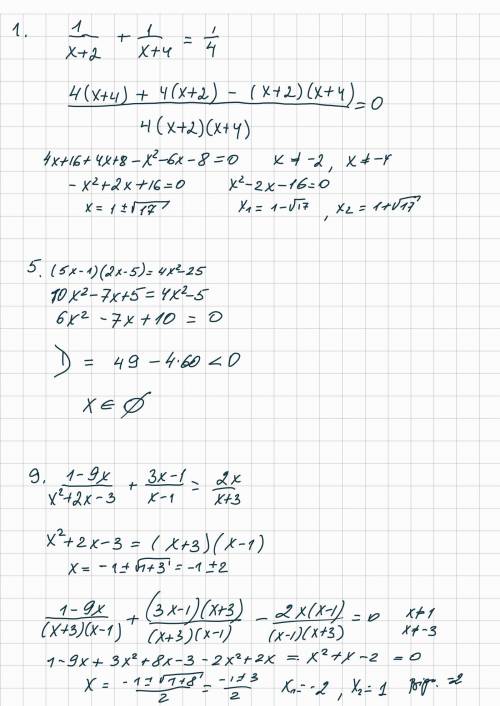 1. 1/(x+2) + 1/(x+4) = 1/4
(4(x+4) + 4(x+2) - (x+2)(x+4))/(4(x+2)(x+4)) = 0
4x+16+4x+8-x²-6x-8=0 x≠-2, x≠-4
-x²+2x+16=0 x²-2x-16=0
x=1±√17 x₁=1-√17, x₂=1+√17
5. (5x-1)(2x-5)=4x²-25
10x²-7x+5=4x²-5
6x²-7x+10=0
D = 49-4·60<0
x∈∅
9. (1-9x)/(x²+2x-3) + (3x-1)/(x-1) = 2x/(x+3)
x²+2x-3=(x+3)(x-1)
x=-1±√(1+3)=-1±2
(1-9x)/((x+3)(x-1)) + ((3x-1)(x+3))/((x+3)(x-1)) - (2x(x-1))/((x-1)(x+3)) = 0 x≠1
x≠-3
1-9x+3x²+8x-3-2x²+2x=x²+x-2=0
x=(-1±√(1+8))/2=(-1±3)/2 x₁=-2, x₂=1